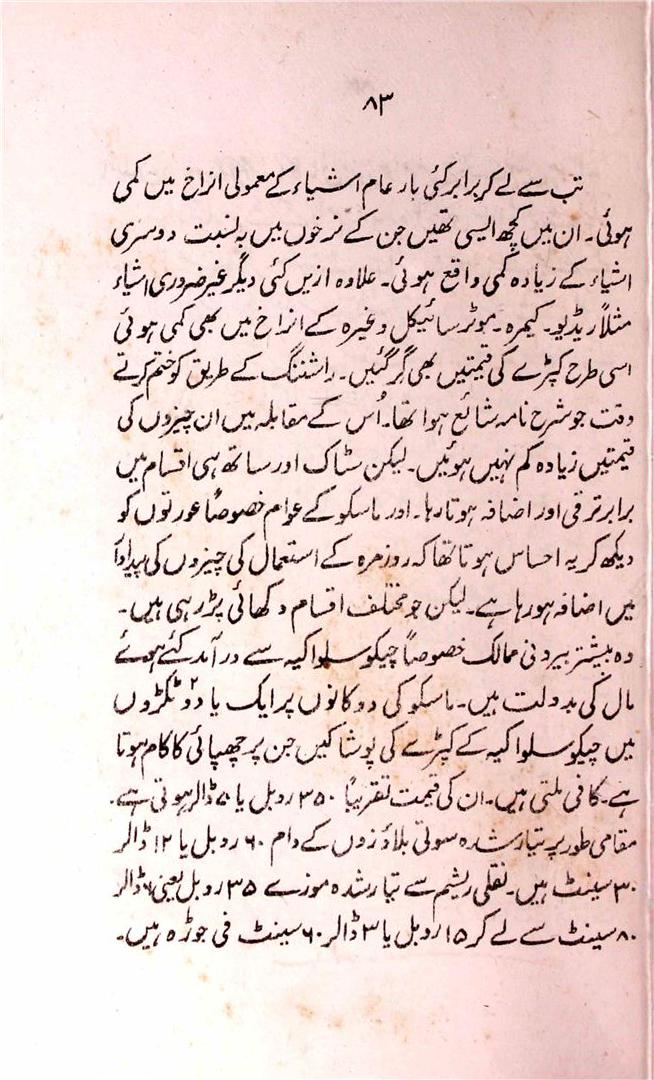 ۸۳
تب سے لے کر برابر کئی بار عام اشیاء کے معمولی انراخ میں کمی
ہوئی۔ ان میں کچھ ایسی تھیں جن کے نرخوں میں بہ نسبت دوسری
اشیاء کے زیادہ کمی واقع ہوئی۔ علاوہ ازیں کئی دیگر غیر ضروری اشیاء
مثلاً ریڈیو۔ کیمرہ۔ موٹر سائیکل وغیرہ کے انراخ میں بھی کمی ہوئی
اسی طرح کپڑے کی قیمتیں بھی گر گئیں۔ راشننگ کے طریق کو ختم کرتے
وقت جو شرح نامہ شائع ہوا تھا۔ اُس کے مقابلہ میں ان چیزوں کی
قیمتیں زیادہ کم نہیں ہوئیں۔ لیکن سٹاک اور ساتھ ہی اقسام میں
برابر ترقی اور اضافہ ہوتا رہا۔ اور ماسکو کے عوام خصوصاً عورتوں کو
دیکھ کر یہ احساس ہوتا تھا کہ روزمرہ کے استعمال کی چیزوں کی پیداوار
میں اضافہ ہو رہا ہے۔ لیکن جو مختلف اقسام دکھائی پڑ رہی ہیں۔
وہ بیشتر بیرونی ممالک خصوصاً چیکوسلواکیہ سے درآمد کئے ہوئے
مال کی بدولت ہیں۔ ماسکو کی دوکانوں پر ایک یا دو ۲ ٹکڑوں
میں چیکوسلواکیہ کے کپڑے کی پوشاکیں جن پر چھپائی کا کام ہوتا
ہے۔ کافی ملتی ہیں۔ ان کی قیمت تقریباً ۳۵۰ روبل یا ڈالر ہوتی ہے۔
مقامی طور پر تیار شدہ سوتی بلاؤزوں کے دام ۶۰ روبل یا ۱۲ ڈالر
۳۰ سینٹ ہیں۔ نقلی ریشم سے تیار شدہ موزے ۳۵ روبل یعنی ڈالر
۸۰ سینٹ سے لے کر ۱۵ روبل یا ۳ ڈالر ۶۰ سینٹ فی جوڑہ ہیں۔